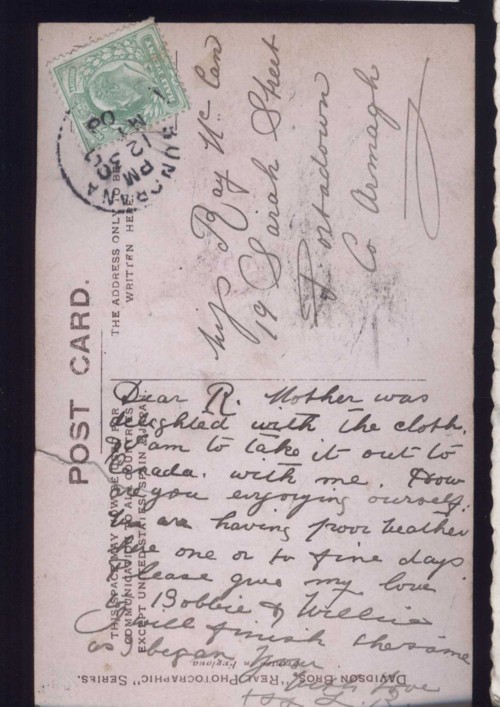 POST CARD.
THIS SPACE MAY NOW BE USED FOR
COMMUNICATION TO ALL COUNTRIES
EXCEPT UNITED STATES, SPAIN & JAPAN.
THE ADDRESS ONLY TO BE
WRITTEN HERE.
BUNCRANA
12 30 PM
08
Miss Ray Mc Cann
19 Sarah Street
Portadown
Co Armagh
Dear R. Mother was
delighted with the cloth.
I am to take it out to
Canada. with me. How
are you enjoying ourself.
We are having poor weather
here one or to fine days.
Please give my love
to Bobbie & Willie
will finish the same
as I began
with love
L. R.
DAVIDSON BROS' "REAL PHOTOGRAPHIC" SERIES.